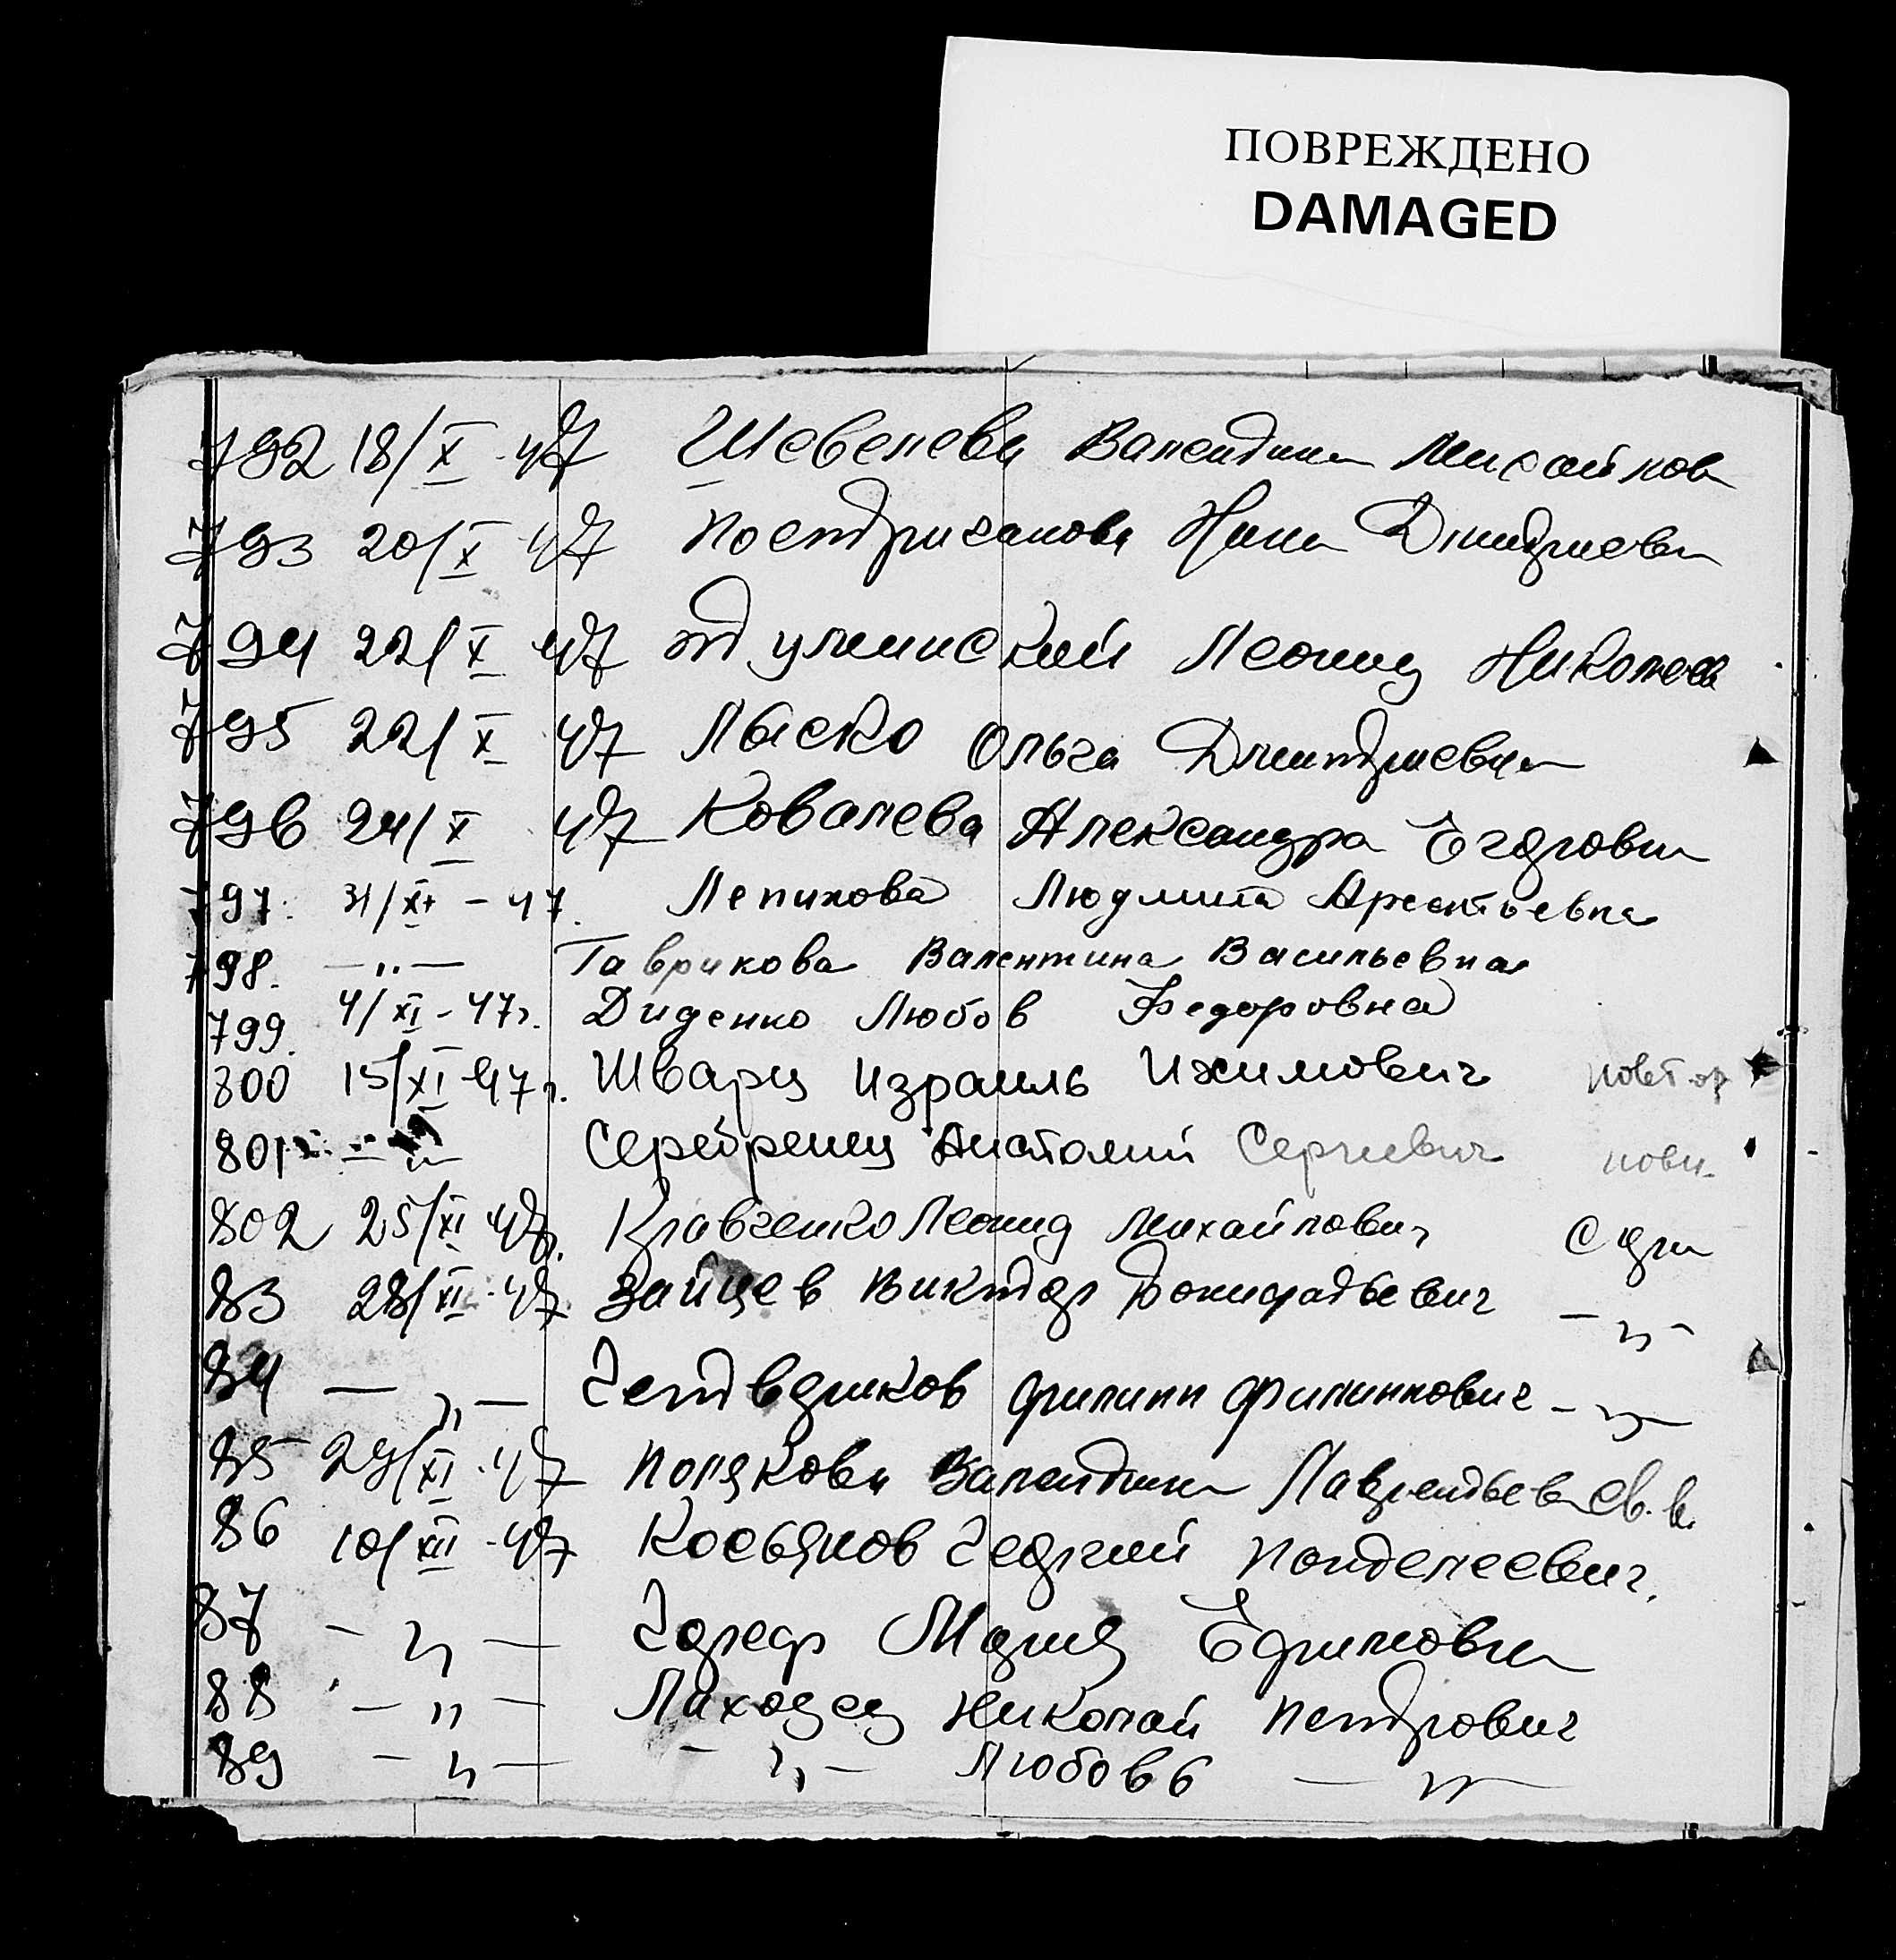 ПОВРЕЖДЕНО
DAMAGED
792 18/X 47 Шевелева Валентина Михайлов
793 20/X 47 Нина Дмитриевн
794 22/X 47 Леонид Николаев
795 22/X 47 Лыско Ольга Дмитриевна
796 24/X 47 Ковалева Александра Егоровн
797. 31/XI - 47. Лепихова Людмила Арсентьевна
798. — „ — Таврикова Валентина Васильевна
799. 4/XI - 47г. Диденко Любов Федоровна
800 15/XI - 47г. Шварц Израиль Ихимович повтор
801 — „ — Серебренц Анатолий Сергиевич
802 25/XI 47г. Кравченко Леонид Михайлович
83 28/XI - 47 Зайцев Виктор — „ —
84 — „ — Четвериков Филипп Филиппович — „ —
85 29/XI - 47 Полякова Валентина Лаврентьев
86 10/XII - 47 Косьянов Георгий Пантелеевич.
87 — „ — Мария Ефимовн
88 — „ — Николай Петрович
89 — „ — — „ — Любовь — „ —